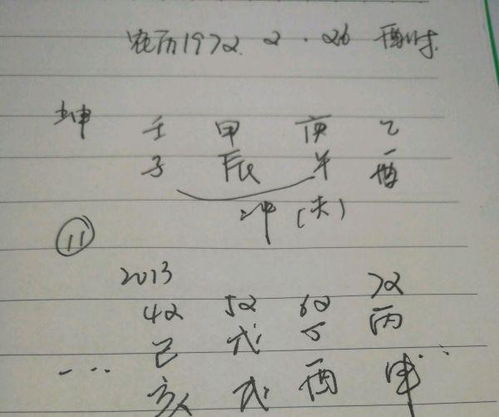 农历1972.2.26 酉时
坤 壬 甲 庚 乙
子 辰 午 酉
冲(夫)
11
2013
42 52 62 72
己 戊 丁 丙
... 亥 戌 酉 申...